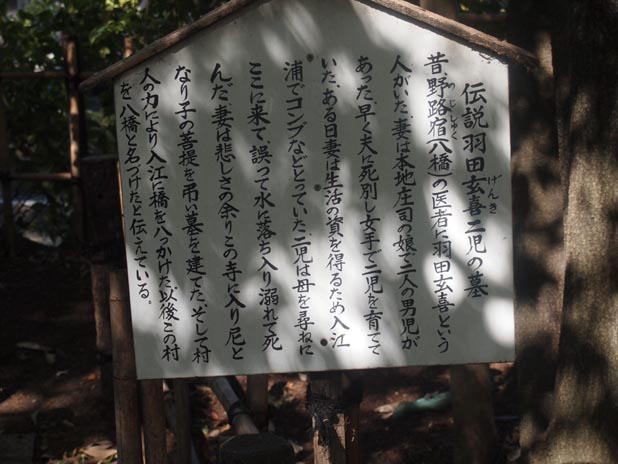 伝説羽田玄喜二児の墓
げんき
昔、野路宿(八橋)の医者に羽田玄喜という
のじしゅく
人がいた。妻は本地庄司の娘で二人の男児が
あった。早く夫に死別し女手で二児を育てて
いた。ある日妻は生活の資を得るため入江
浦でコンブなどとっていた。二児は母を尋ねに
ここに来て、誤って水に落ち入り溺れて死
んだ。妻は悲しさの余りこの寺に入り尼と
なり子の菩提を弔い墓を建てた。そして村
人の力により入江に橋を八っかけた。以後この村
を八橋と名づけたと伝えている。